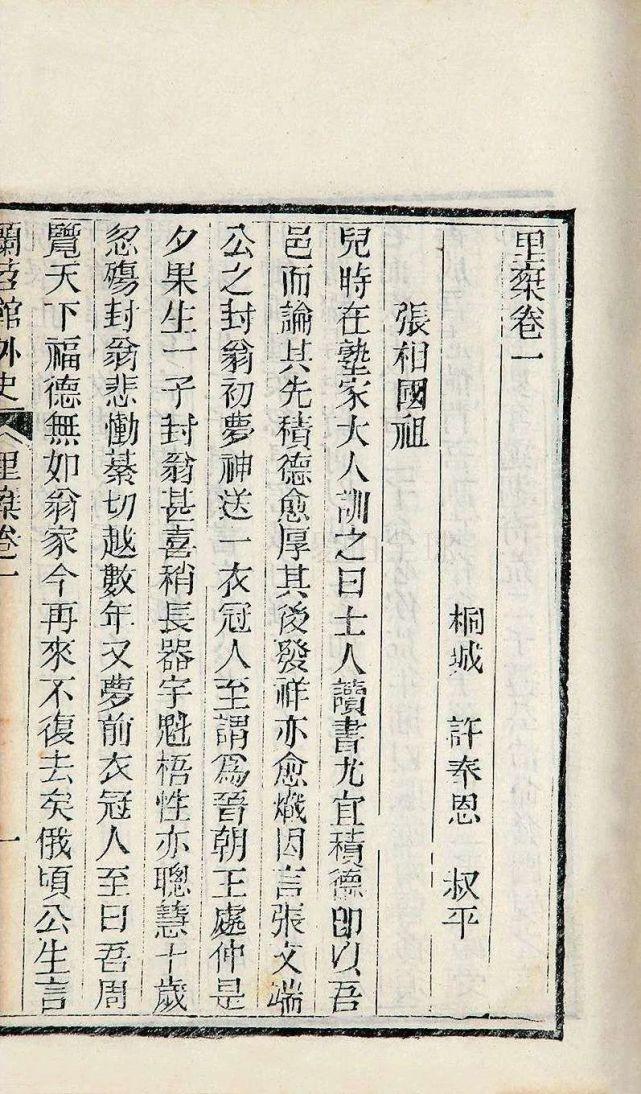 里椉卷一
桐城 許奉恩 叔平
張相國祖
兒時在塾家大人訓之曰士人讀書尤宜積德卽以吾
邑而論其先積德愈厚其後發祥亦愈熾因言張文端
公之封翁初夢神送一衣冠人至謂爲晉朝王處仲是
夕果生一子封翁甚喜稍長器宇魁梧性亦聰慧十歲
忽殤封翁悲慟綦切越數年又夢前衣冠人至曰吾周
覽天下福德無如翁家今再來不復去矣俄頃公生言
蘭苕館外史 里椉卷一 一